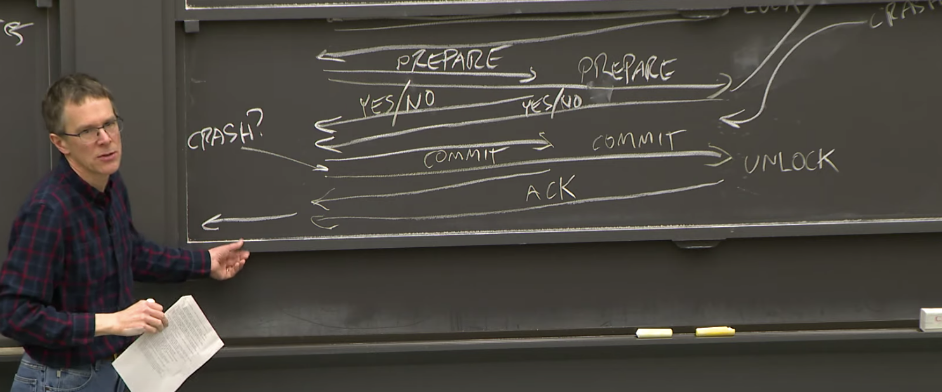 PREPARE
PREPARE
YES/NO
YES/NO
CRASH?
COMMIT
COMMIT
UNLOCK
ACK